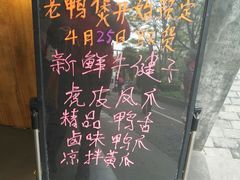 老鸭煲开始预定
4月25日到货
新鲜牛健子
虎皮凤爪
精品鸭舌
卤味鸭爪
凉拌黄瓜